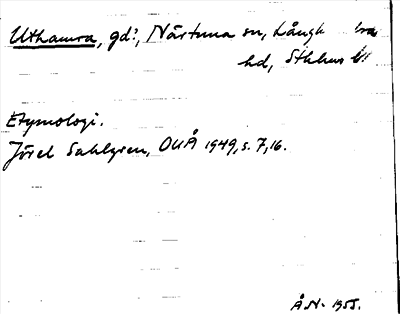 Uthamra, gd?, Närtuna sn, Långh
hd, Sthlms l
Etymologi.
Jöran Sahlgren, OUÅ 1949, s. 7, 16.
Å.N. 1955.